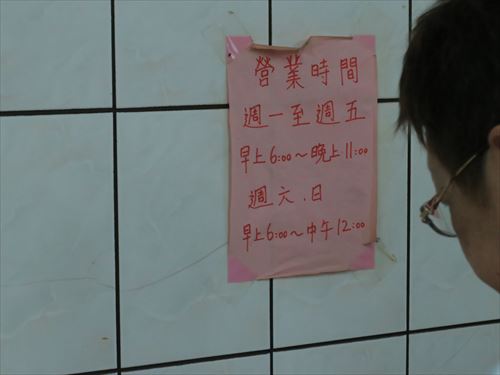 營業時間
週一至週五
早上6:00~晚上11:00
週六.日
早上6:00~中午12:00